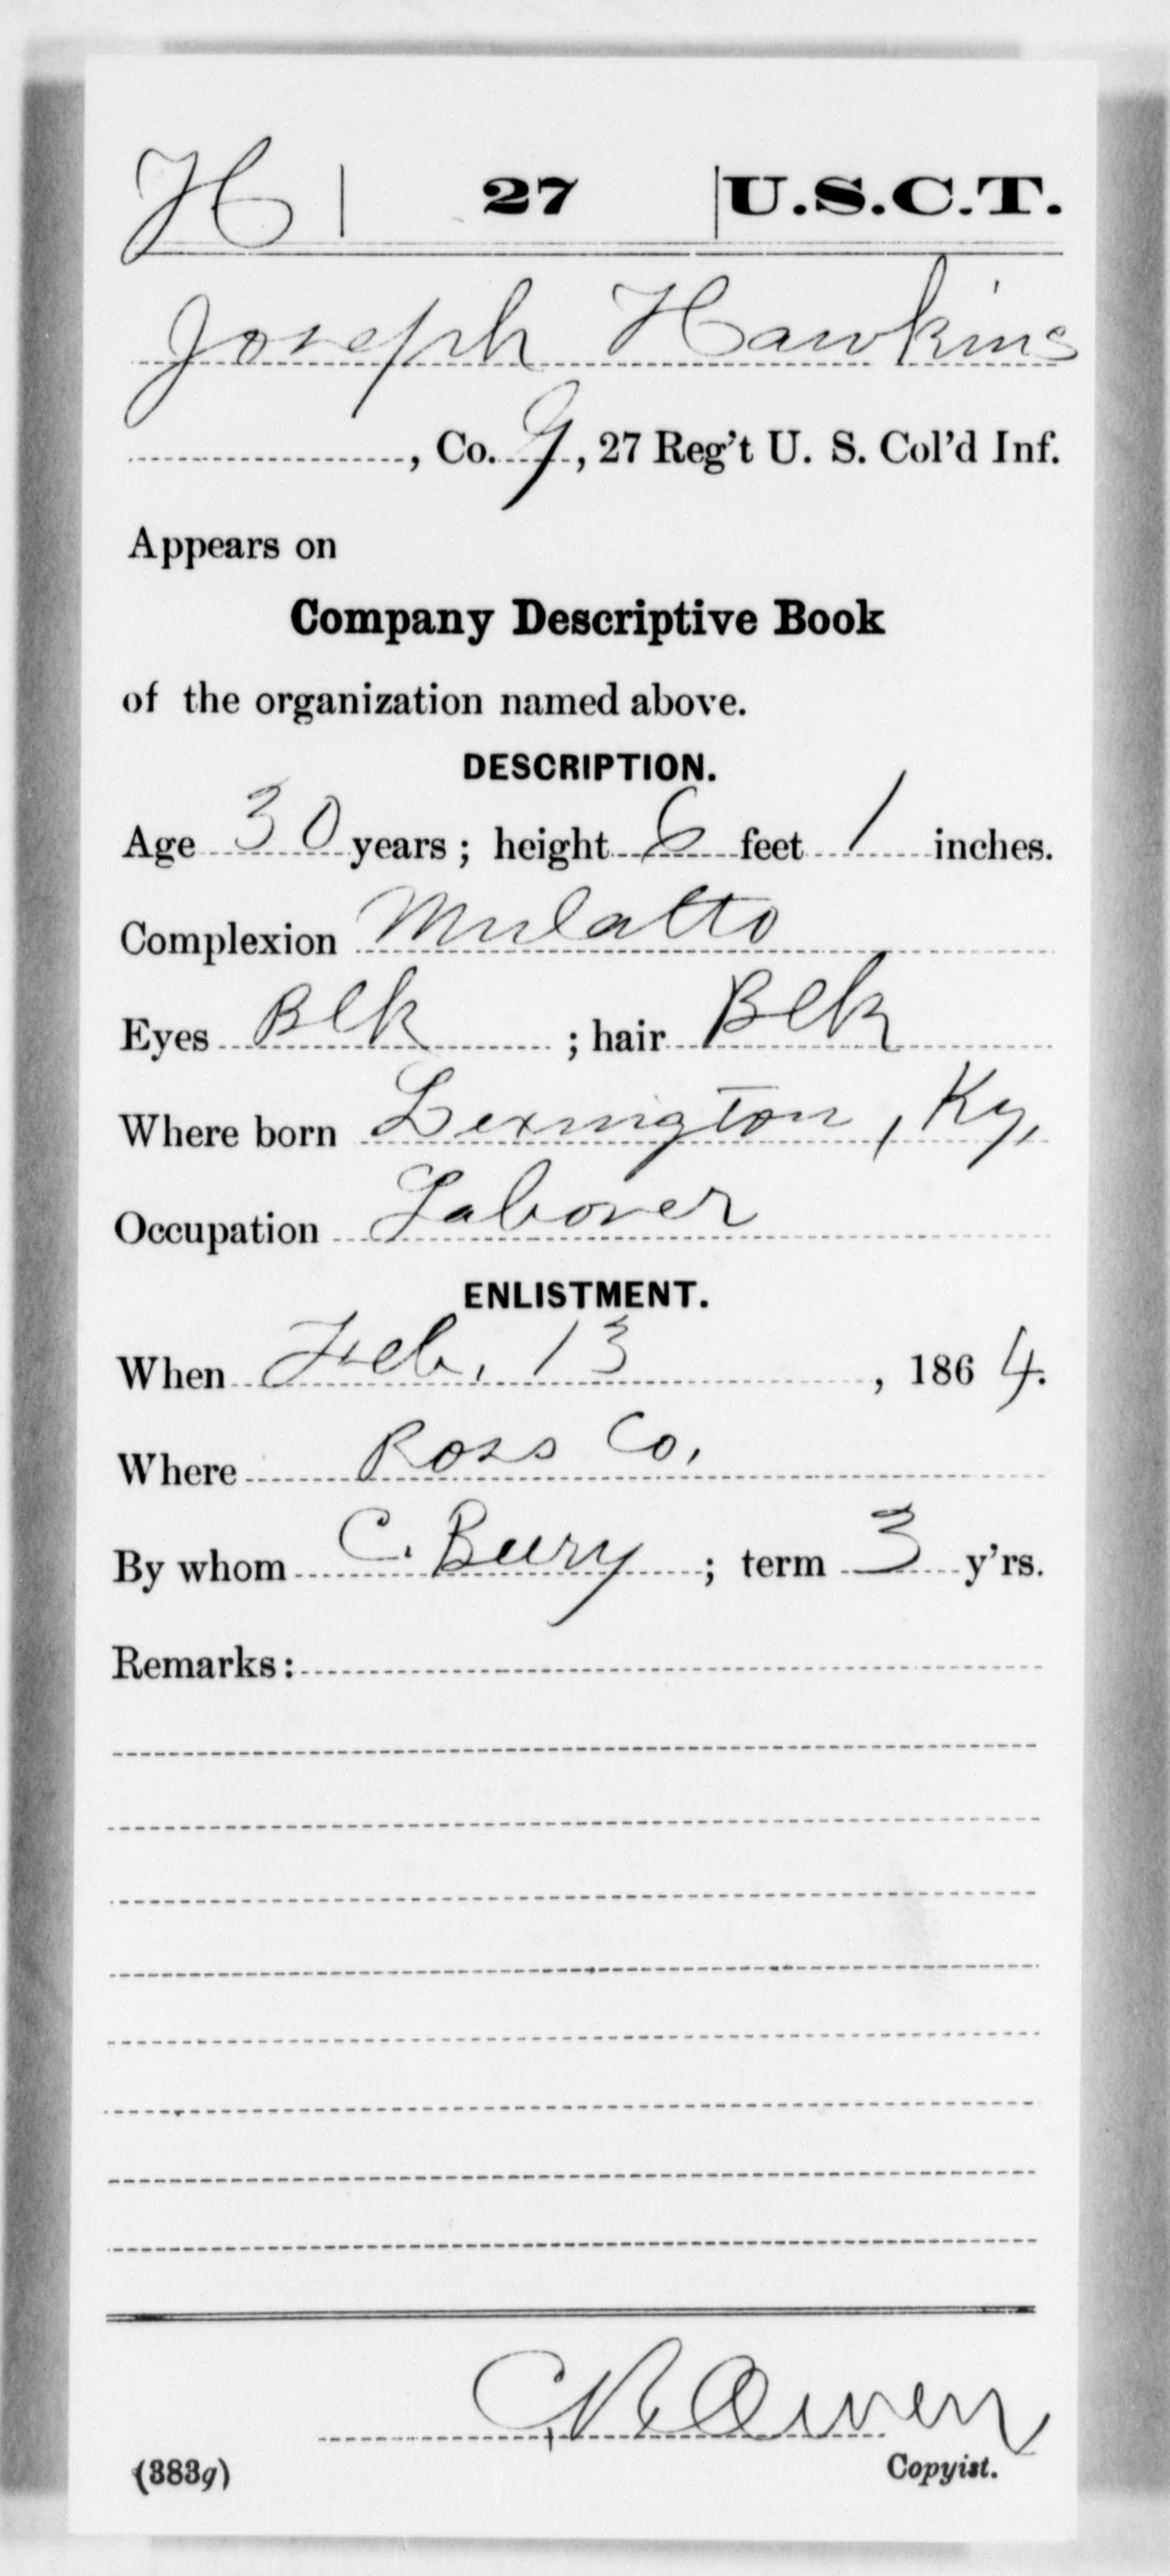 H | 27 | U.S.C.T.
Joseph Hawkins
, Co. G, 27 Reg't U. S. Col'd Inf.
Appears on
Company Descriptive Book
of the organization named above.
DESCRIPTION.
Age 30 years; height 6 feet 1 inches.
Complexion Mulatto
Eyes Blk ; hair Blk
Where born Lexington, Ky,
Occupation Laborer
ENLISTMENT.
When Feb. 13, 1864.
Where Ross Co.
By whom C. Bury; term 3 y'rs.
Remarks:
C R Owen
(383g) Copyist.